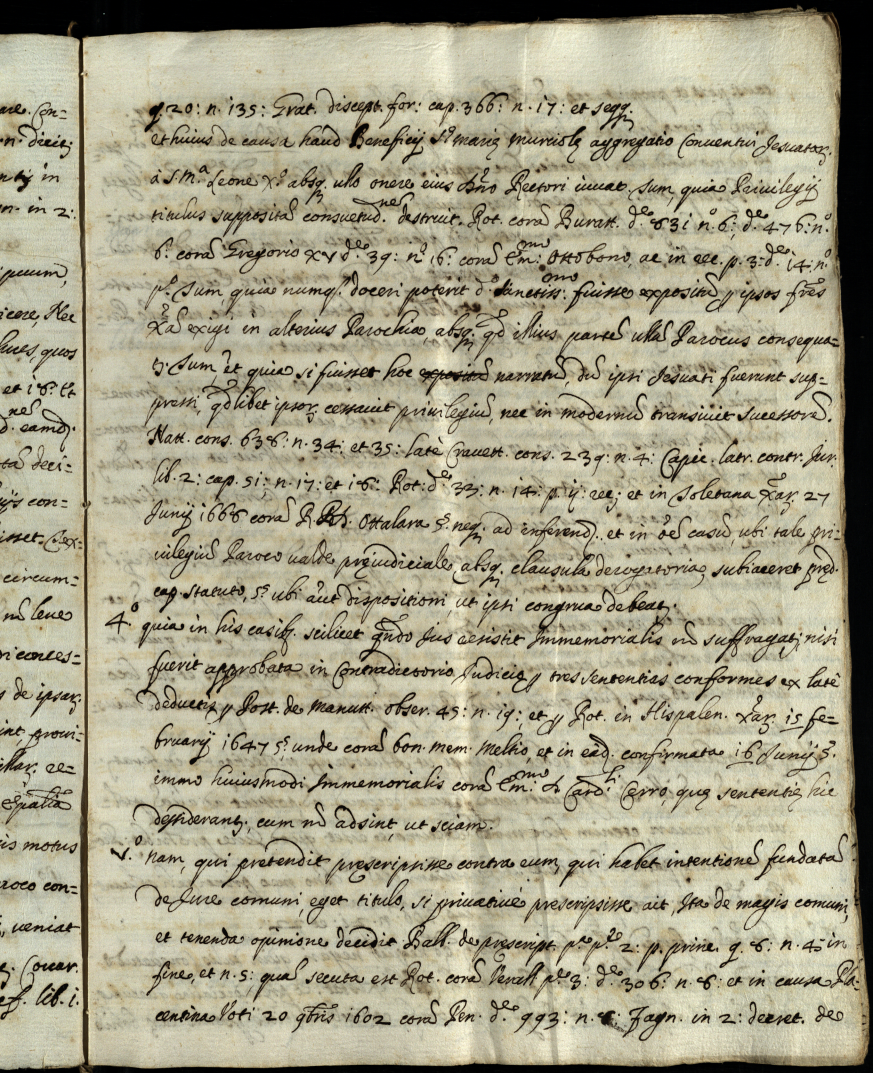 are. Con=
n. dicitᷣ
in
in 2:
icere, Nec
quos
et 18: Et
eamd:
deci=
con=
Cex=
circum=
leve
de ipsar:
int provi=
motus
aroco con=
veniat
Covar.
lib. i.
q. 20: n. 135: Grat. discept. for: cap. 366: n. 17: et seqq.
et huius de causa haud Beneficij Sᵗᵉ mariæ murciolæ aggregatio Conventui Jesuator:
à s. mᵃ Leone Xº absq. ullo onere eius Rectori iuvat. Sum, quia Privilegij
titulus suppositā consuetudᵐ destruit. Rot. corā Buratt. dᵉᶜ 831 nº 6:, dᵉᶜ 476: nº
6: corā Gregorio XV dᵉᶜ 39: nº 16: corā Em̄ᵐᵒ Ottobono, ac in rec. p. 3: dᵉᶜ 14: nº
pº Sum, quia numq. doceri poterit dº Sanctiss:ᵐᵒ fuisse expositū p ipsos frēs
Xā exigi in alterius Parochia, absq. qd illius partē ullā Parocus consequa-
tᷣ. Sum et quia si fuisset hoc narratū, dū ipsi Jesuati fuerunt sup=
pressi, qdlibet ipsor: cessavit privilegiū, nec in modernū transivit sucessorē.
Natt. cons. 638: n. 34: et 35: latè Cravett. cons. 239: n. 4: Capic. latr. contr. Jur.
lib. 2: cap. 51: n. 17: et 18: Rot: dᵉᶜ 33: n. 14: p. ij: rec; et in Toletana Xar: 27
Junij 1668 corā R. Ottalara §. neq. ad inferend:. et in oē casū, ubi tale pri-
vilegiū Paroco valde præiudiciale, absq. clausula derogatoria, subiaceret præd.
cap. statuto, §. ubi aūt dispositioni, ut ipsi congrua debeatᷣ.
4.º quia in his casibꝫ scilicet qn̄do Jus resistit Immemorialis nō suffragatᷣ, nisi
fuerit approbata in Contradictorio Judicio p tres sententias conformes ex latè
deductis p Post. de Manutt. obser. 45: n. 19:, et p Rot. in Hispalen. Xar: 15 fe=
bruarij 1647 §. unde corā bon. mem. Meltio, et in eād. confirmata 16 Junij §.
immo huiusmodi Immemorialis corā Em̄ᵐᵒ Cardˡⁱ Cerro, quæ sententiæ hic
desiderantᷣ, cum nō adsint, ut sciam.
V.º nam, qui pretendit præscripsisse contra eum, qui habet intentionē fundatā
de Jure comuni, eget titulo, si privativè prescripsisse ait, Ita de magis comuni,
et tenenda opinione decidit Balb. de prescript. 2: p. princ. q. 8: n. 4: in
fine, et n. 5: quā secuta est Rot. corā Verall pᵗᵉ 3: dᵉᶜ 306: n. 8: et in causa Pla-
centina Voti 20 9bris 1602 corā Pen. dᵉᶜ 993: n. 8: Fagn. in 2: decret. de